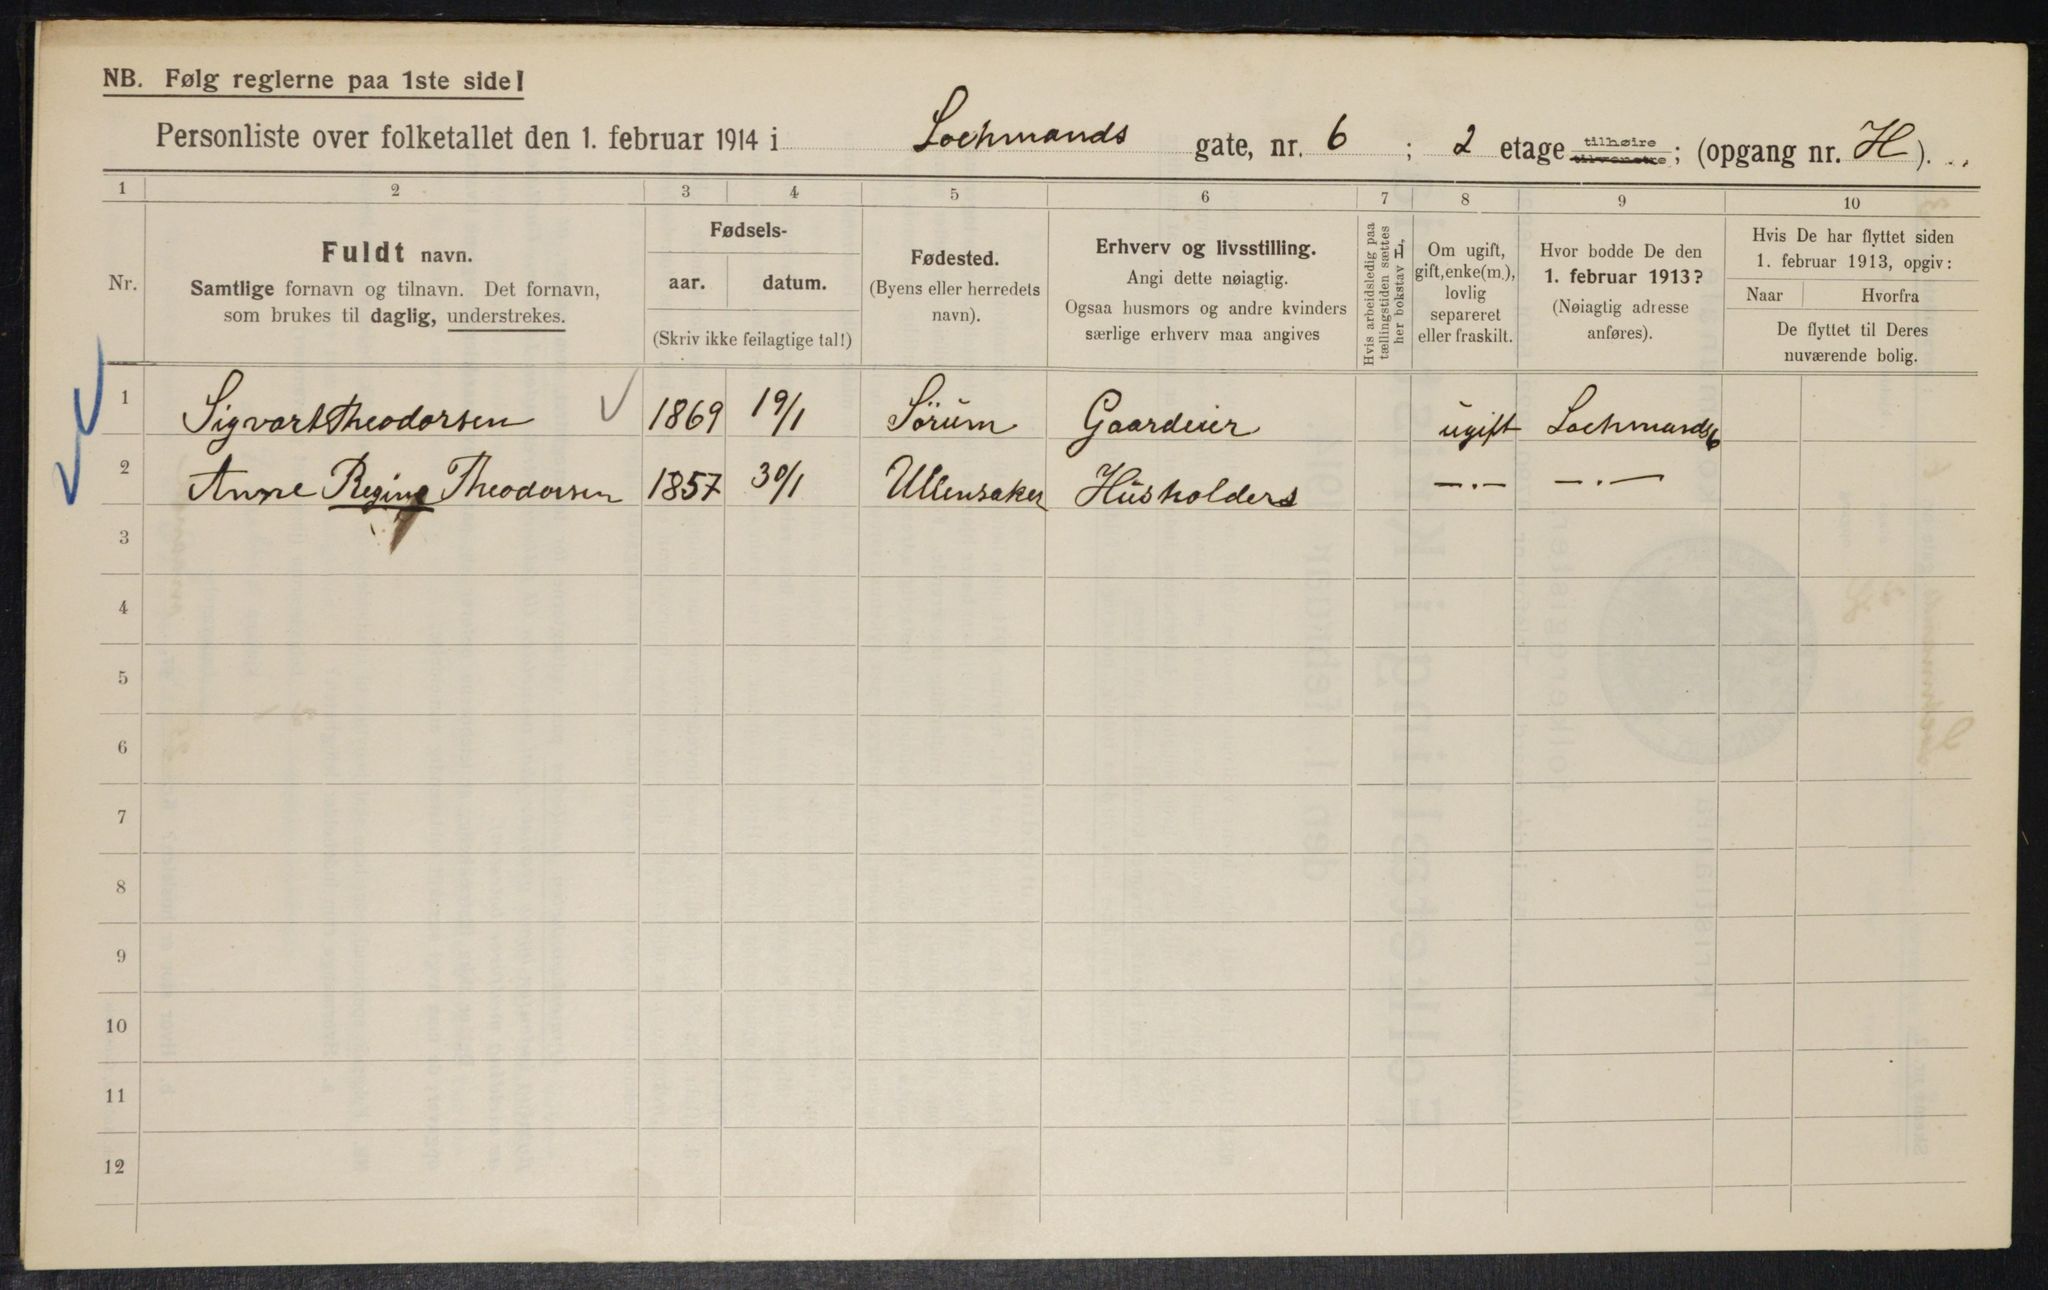 NB. Følg reglerne paa 1ste side!
Personliste over folketallet den 1. februar 1914 i Lochmands gate, nr. 6 ; 2 etage tilhøire tilvenstre ; (opgang nr. H ).
1 2 3 4 5 6 7 8 9 10
Nr.
Fuldt navn.
Samtlige fornavn og tilnavn. Det fornavn,
som brukes til daglig, understrekes.
Fødsels-
aar. datum.
(Skriv ikke feilagtige tal!)
Fødested.
(Byens eller herredets
navn).
Erhverv og livsstilling.
Angi dette nøiagtig.
Ogsaa husmors og andre kvinders
særlige erhverv maa angives
Hvis arbeidsledig paa
tællingstiden sættes
her bokstav L.
Om ugift,
gift, enke(m.),
lovlig
separeret
eller fraskilt.
Hvor bodde De den
1. februar 1913?
(Nøiagtig adresse
anføres).
Hvis De har flyttet siden
1. februar 1913, opgiv:
Naar Hvorfra
De flyttet til Deres
nuværende bolig.
1 Sigvart Theodorsen 1869 19/1 Sörum Gaardeier ugift Lochmands 6
2 Anne Regine Theodorsen 1857 30/1 Ullensaker Husholders —.— —.—
3
4
5
6
7
8
9
10
11
12